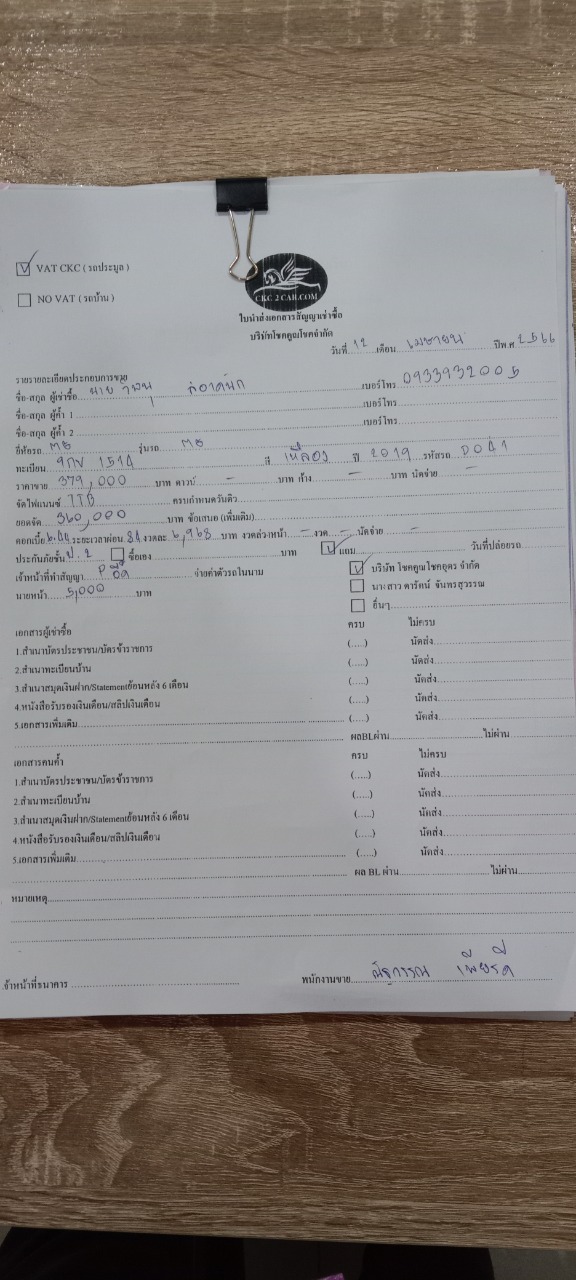 VAT CKC ( รถประมูล )
NO VAT ( รถบ้าน )
CKC 2 CAR.COM
ใบนำส่งเอกสารสัญญาเช่าซื้อ
บริษัทโชคคูณโชคจำกัด
วันที่ 12 เดือน เมษายน ปีพ.ศ. 2566
รายรายละเอียดประกอบการขาย
ชื่อ-สกุล ผู้เช่าซื้อ นาย เบอร์โทร 0933932005
ชื่อ-สกุล ผู้ค้ำ 1 เบอร์โทร
ชื่อ-สกุล ผู้ค้ำ 2 เบอร์โทร
ยี่ห้อรถ MG รุ่นรถ MG
ทะเบียน 1514 สี เหลือง ปี 2019 รหัสรถ D041
ราคาขาย 379,000 บาท ดาวน์ - บาท ค้าง - บาท นัดจ่าย -
จัดไฟแนนซ์ TTB ครบกำหนดรับติว
ยอดจัด 360,000 บาท ข้อเสนอ (เพิ่มเติม)
ดอกเบี้ย 6.44 ระยะเวลาผ่อน 84 งวดละ 6,968 บาท งวดล่วงหน้า - งวด - นัดจ่าย -
ประกันภัยชั้น ป.2 ซื้อเอง บาท แถม วันที่ปล่อยรถ
เจ้าหน้าที่ทำสัญญา จ่ายค่าตัวรถในนาม บริษัท โชคคูณโชคอุดร จำกัด
นายหน้า 5,000 บาท นางสาว ดารัตน์ จันทรสุวรรณ
อื่นๆ
เอกสารผู้เช่าซื้อ ครบ ไม่ครบ
1.สำเนาบัตรประชาชน/บัตรข้าราชการ (.....) นัดส่ง
2.สำเนาทะเบียนบ้าน (.....) นัดส่ง
3.สำเนาสมุดเงินฝาก/Statementย้อนหลัง 6 เดือน (.....) นัดส่ง
4.หนังสือรับรองเงินเดือน/สลิปเงินเดือน (.....) นัดส่ง
5.เอกสารเพิ่มเติม (.....) นัดส่ง
ผลBLผ่าน ไม่ผ่าน
เอกสารคนค้ำ ครบ ไม่ครบ
1.สำเนาบัตรประชาชน/บัตรข้าราชการ (.....) นัดส่ง
2.สำเนาทะเบียนบ้าน (.....) นัดส่ง
3.สำเนาสมุดเงินฝาก/Statementย้อมหลัง 6 เดือน (.....) นัดส่ง
4.หนังสือรับรองเงินเดือน/สลิปเงินเดือน (.....) นัดส่ง
5.เอกสารเพิ่มเติม (.....) นัดส่ง
ผล BL ผ่าน ไม่ผ่าน
หมายเหตุ
จ้าหน้าที่ธนาคาร พนักงานขาย